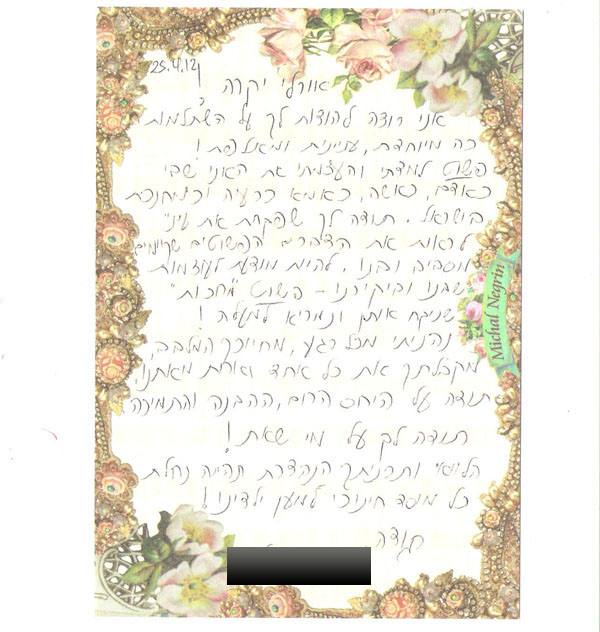 25.4.12
אורלי יקרה,
אני רוצה להודות לך על השתלמות
כה מיוחדת, עניינית ומאלפת!
פשוט למדתי והעצמתי את האני שבי
כאדם, כאשה, כאמא כרעיה וכמחנכת
בישראל. תודה לך שפקחת את עיני
לראות את הדברים הפשוטים שקיימים
מסביב ובנו, להיות מודעת לעוצמות
שבנו וביקירנו – פשוט "מחכות"
שניקח אותן ונמריא למעלה!
נהניתי מכל רגע, מחיוכך המלבב,
מקבלתך את כל אחד ואחת מאתנו,
תודה על היחס החם, ההבנה והתמיכה
תודה לך על מי שאת!
הלוואי ותכניתך הנהדרת תהיה נחלת
כל מוסד חינוכי למען ילדינו!
תודה
Michal Negrin